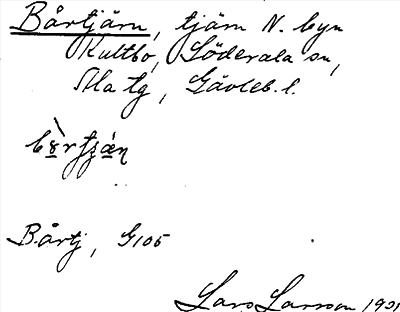 Bårtjärn, tjärn N. byn
Kultbo, Söderala sn,
Ala tg, Gävleb. l.
Bårtj, G105
Lars Larsson 1931